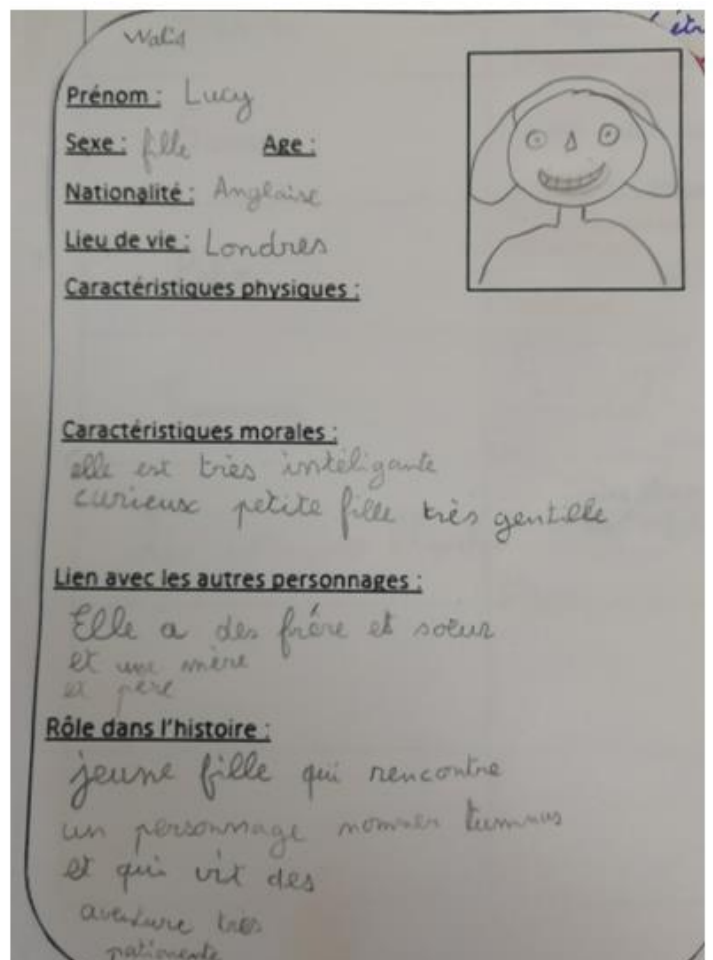 Walid
êtr
Prénom : Lucy
Sexe : fille Age :
Nationalité : Anglaise
Lieu de vie : Londres
Caractéristiques physiques :
Caractéristiques morales :
elle est très intéligante
curieux petite fille très gentille
Lien avec les autres personnages :
Elle a des frère et soeur
et une mère
et père
Rôle dans l'histoire :
jeune fille qui rencontre
un personnage nommer tumnus
et qui vit des
aventure très